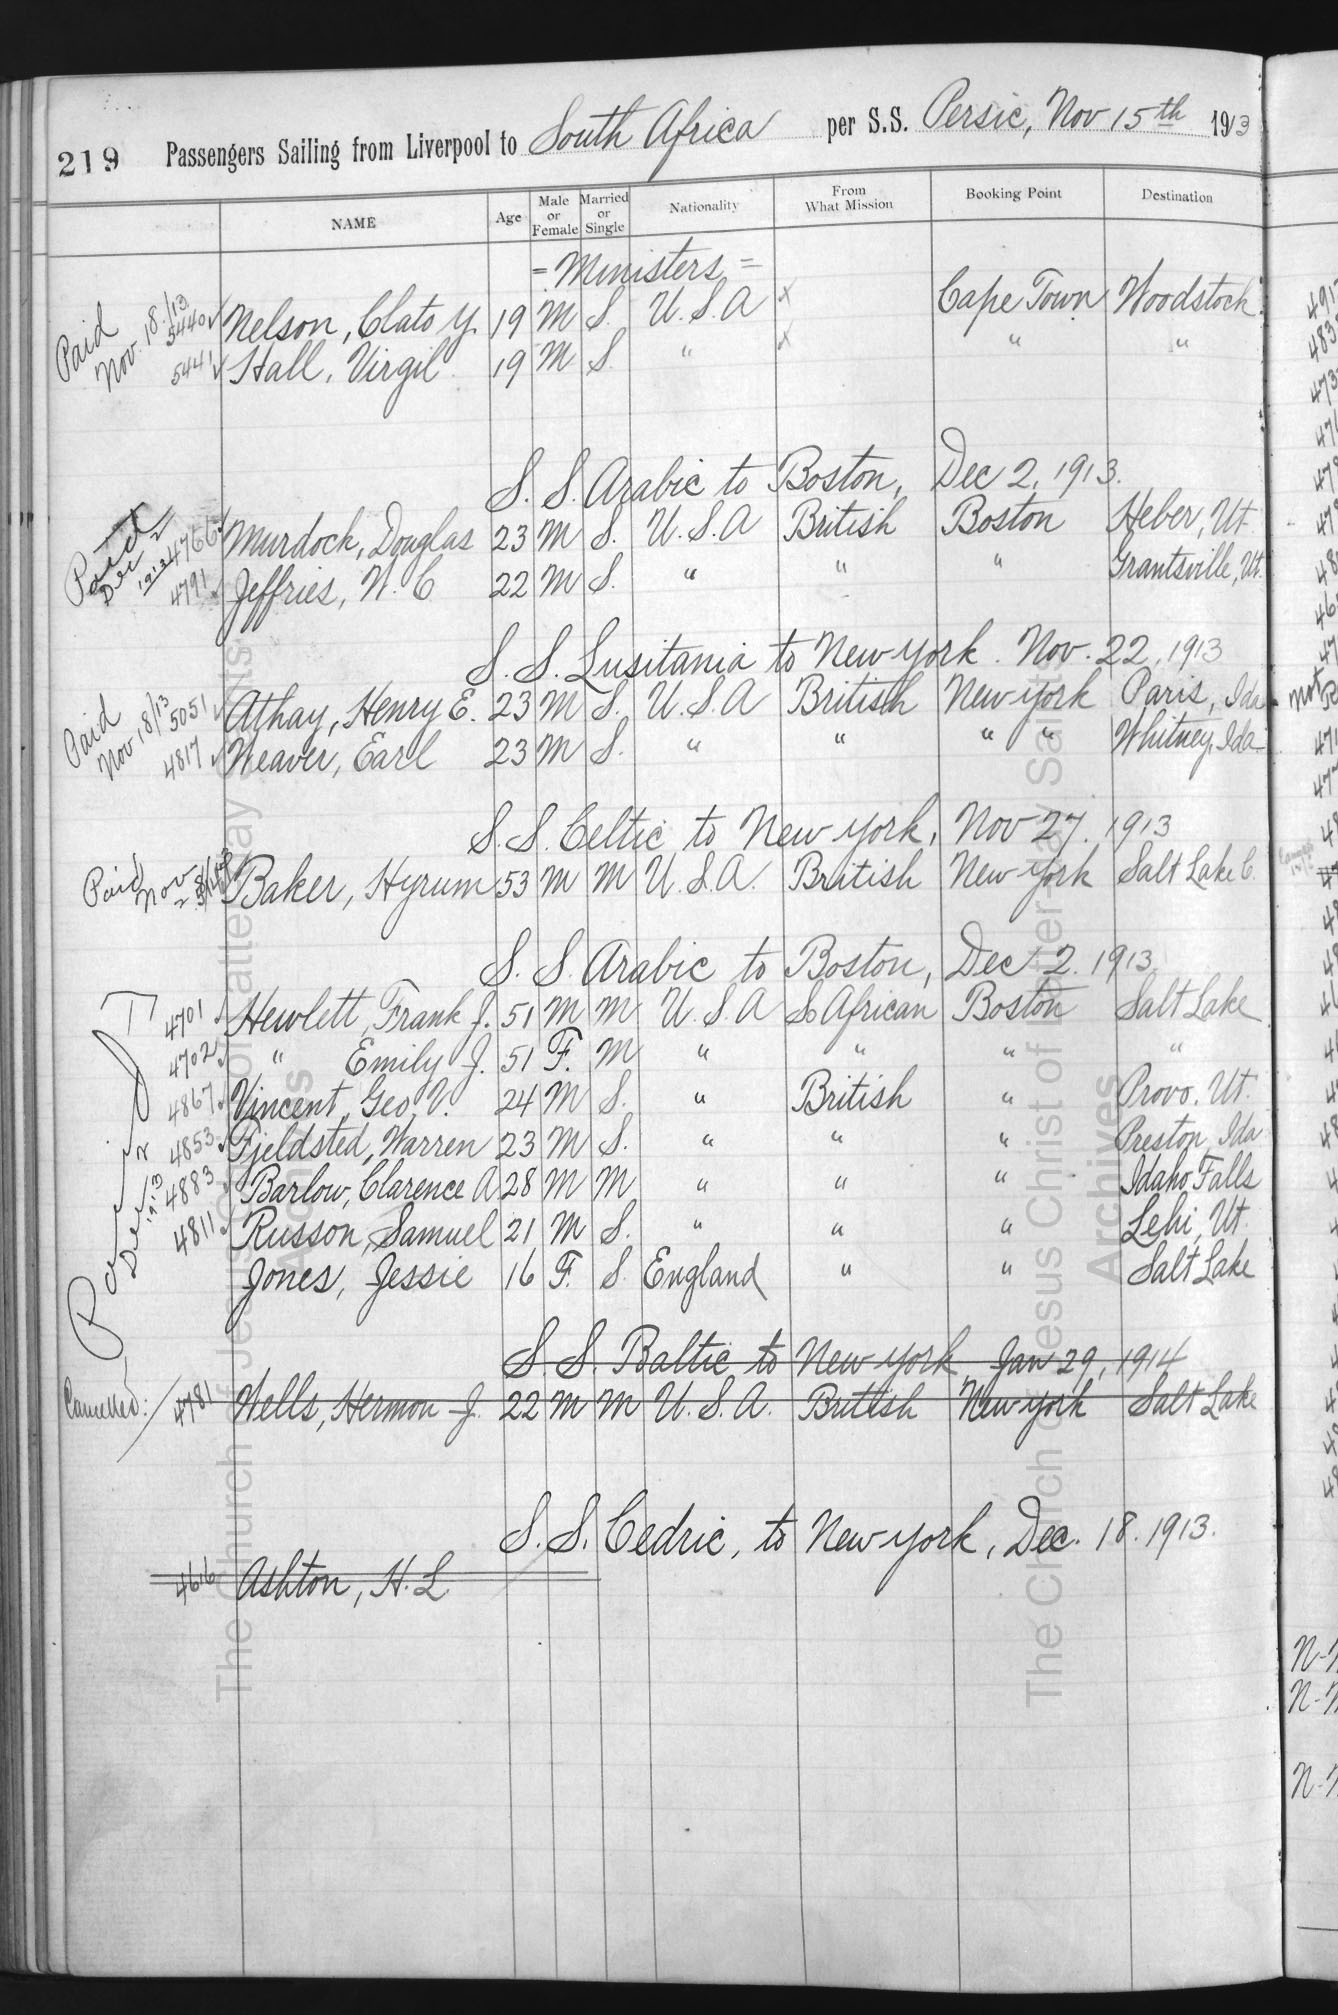 219 Passengers Sailing from Liverpool to South Africa per S.S. Persic, Nov 15th 1913
NAME Age Male or Female Married or Single Nationality From What Mission Booking Point Destination
= Ministers =
Paid Nov. 18/13
5440 Nelson, Clato Y. 19 M S. U.S.A x Cape Town Woodstock
5441 Hall, Virgil 19 M S. " x " "
S. S. Arabic to Boston, Dec 2, 1913.
Paid Dec 2 1913
4766 Murdock, Douglas 23 M S. U.S.A British Boston Heber, Ut.
4791 Jeffries, W. C 22 M S. " " " Grantsville, Ut.
S. S. Lusitania to New York. Nov. 22, 1913
Paid Nov 18/13
5051 Athay, Henry E. 23 M S. U.S.A British New York Paris, Ida
4817 Weaver, Earl 23 M S. " " " " Whitney, Ida
S. S. Celtic to New York, Nov 27. 1913
Paid Nov
Baker, Hyrum 53 M M U.S.A. British New York Salt Lake C.
S. S. Arabic to Boston, Dec 2. 1913
Paid Dec 2 1913
4701 Hewlett, Frank J. 51 M M U.S.A So African Boston Salt Lake
4702 " Emily J. 51 F. M " " " "
4867 Vincent, Geo. V. 24 M S. " British " Provo. Ut.
4853 Fjeldsted, Warren 23 M S. " " " Preston, Ida
4883 Barlow, Clarence A 28 M M " " " Idaho Falls
4811 Russon, Samuel 21 M S. " " " Lehi, Ut.
Jones, Jessie 16 F. S. England " " Salt Lake
S. S. Baltic to New York Jan 29, 1914
Cancelled: 4781 Wells, Hermon J. 22 M M U.S.A. British New York Salt Lake
S. S. Cedric, to New York, Dec. 18. 1913.
4616 Ashton, H. L.
The Church of Jesus Christ of Latter-day Saints
Archives
The Church of Jesus Christ of Latter-day Saints
Archives